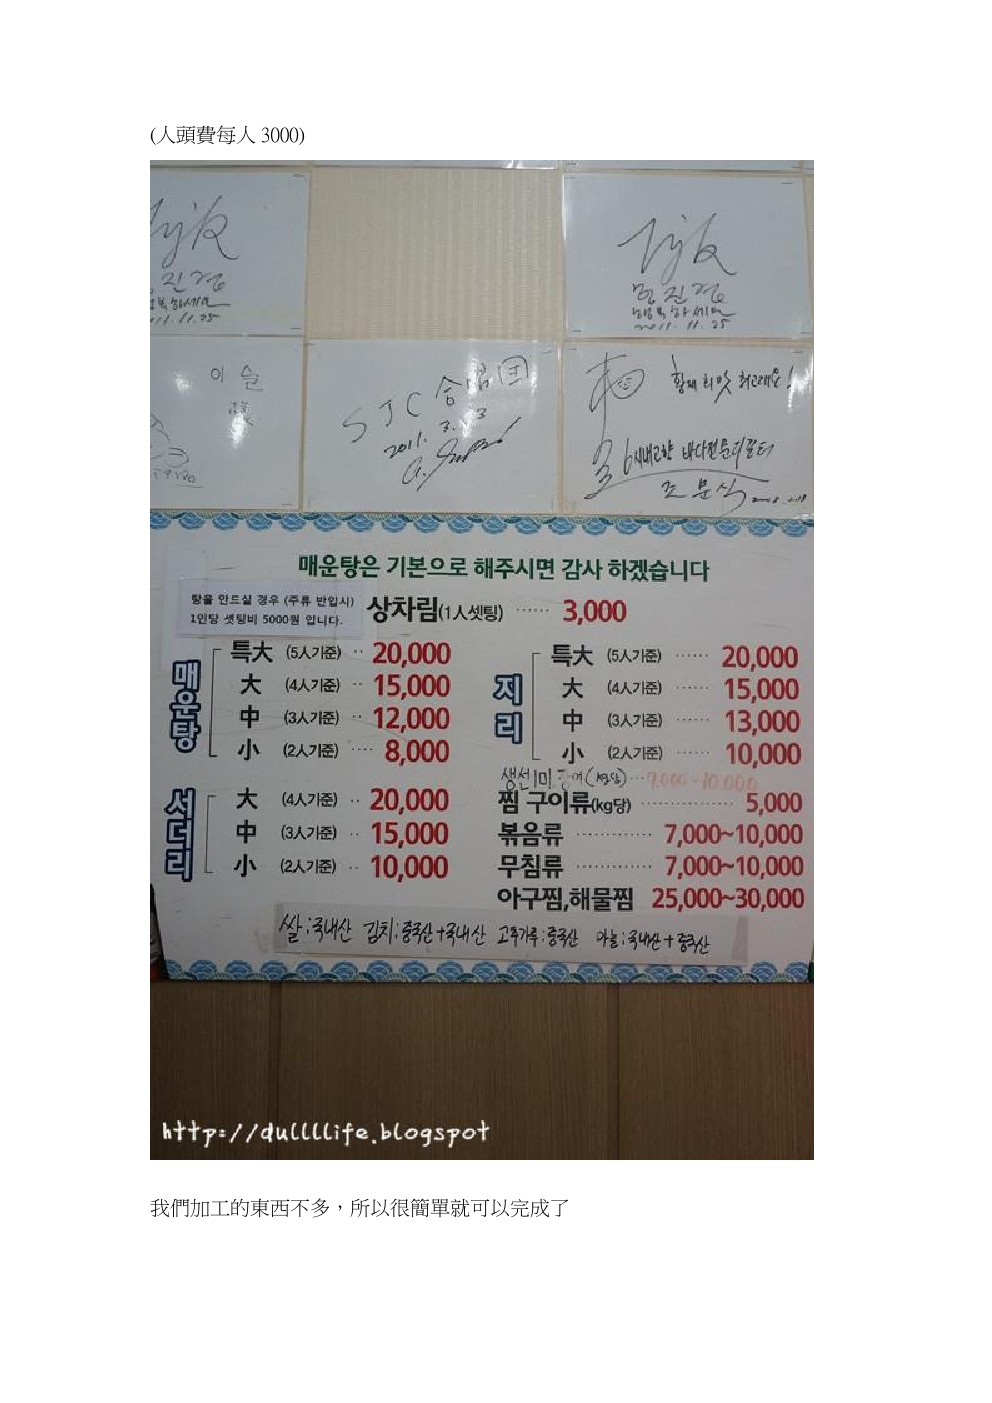 (人頭費每人 3000)
홍진경
행복하세요
2011. 11. 25
이슬
SJC 合唱団
2011. 3.
황제의 맛 최고예요!
6시내고향 바다전문리포터
조문식
매운탕은 기본으로 해주시면 감사 하겠습니다
탕을 안드실 경우 (주류 반입시)
1인당 셋팅비 5000원 입니다.
상차림(1人셋팅) ······ 3,000
매운탕
特大 (5人기준) ·· 20,000
大 (4人기준) ·· 15,000
中 (3人기준) ·· 12,000
小 (2人기준) ···· 8,000
지리
特大 (5人기준) ······ 20,000
大 (4人기준) ······ 15,000
中 (3人기준) ······ 13,000
小 (2人기준) ······ 10,000
서더리
大 (4人기준) ·· 20,000
中 (3人기준) ·· 15,000
小 (2人기준) ·· 10,000
생선 (kg당) ··· 7,000~10,000
찜 구이류(kg당) ··············· 5,000
볶음류 ············ 7,000~10,000
무침류 ············ 7,000~10,000
아구찜,해물찜 25,000~30,000
쌀:국내산 김치:중국산+국내산 고추가루:중국산 마늘:국내산+중국산
http://dullllife.blogspot
我們加工的東西不多，所以很簡單就可以完成了